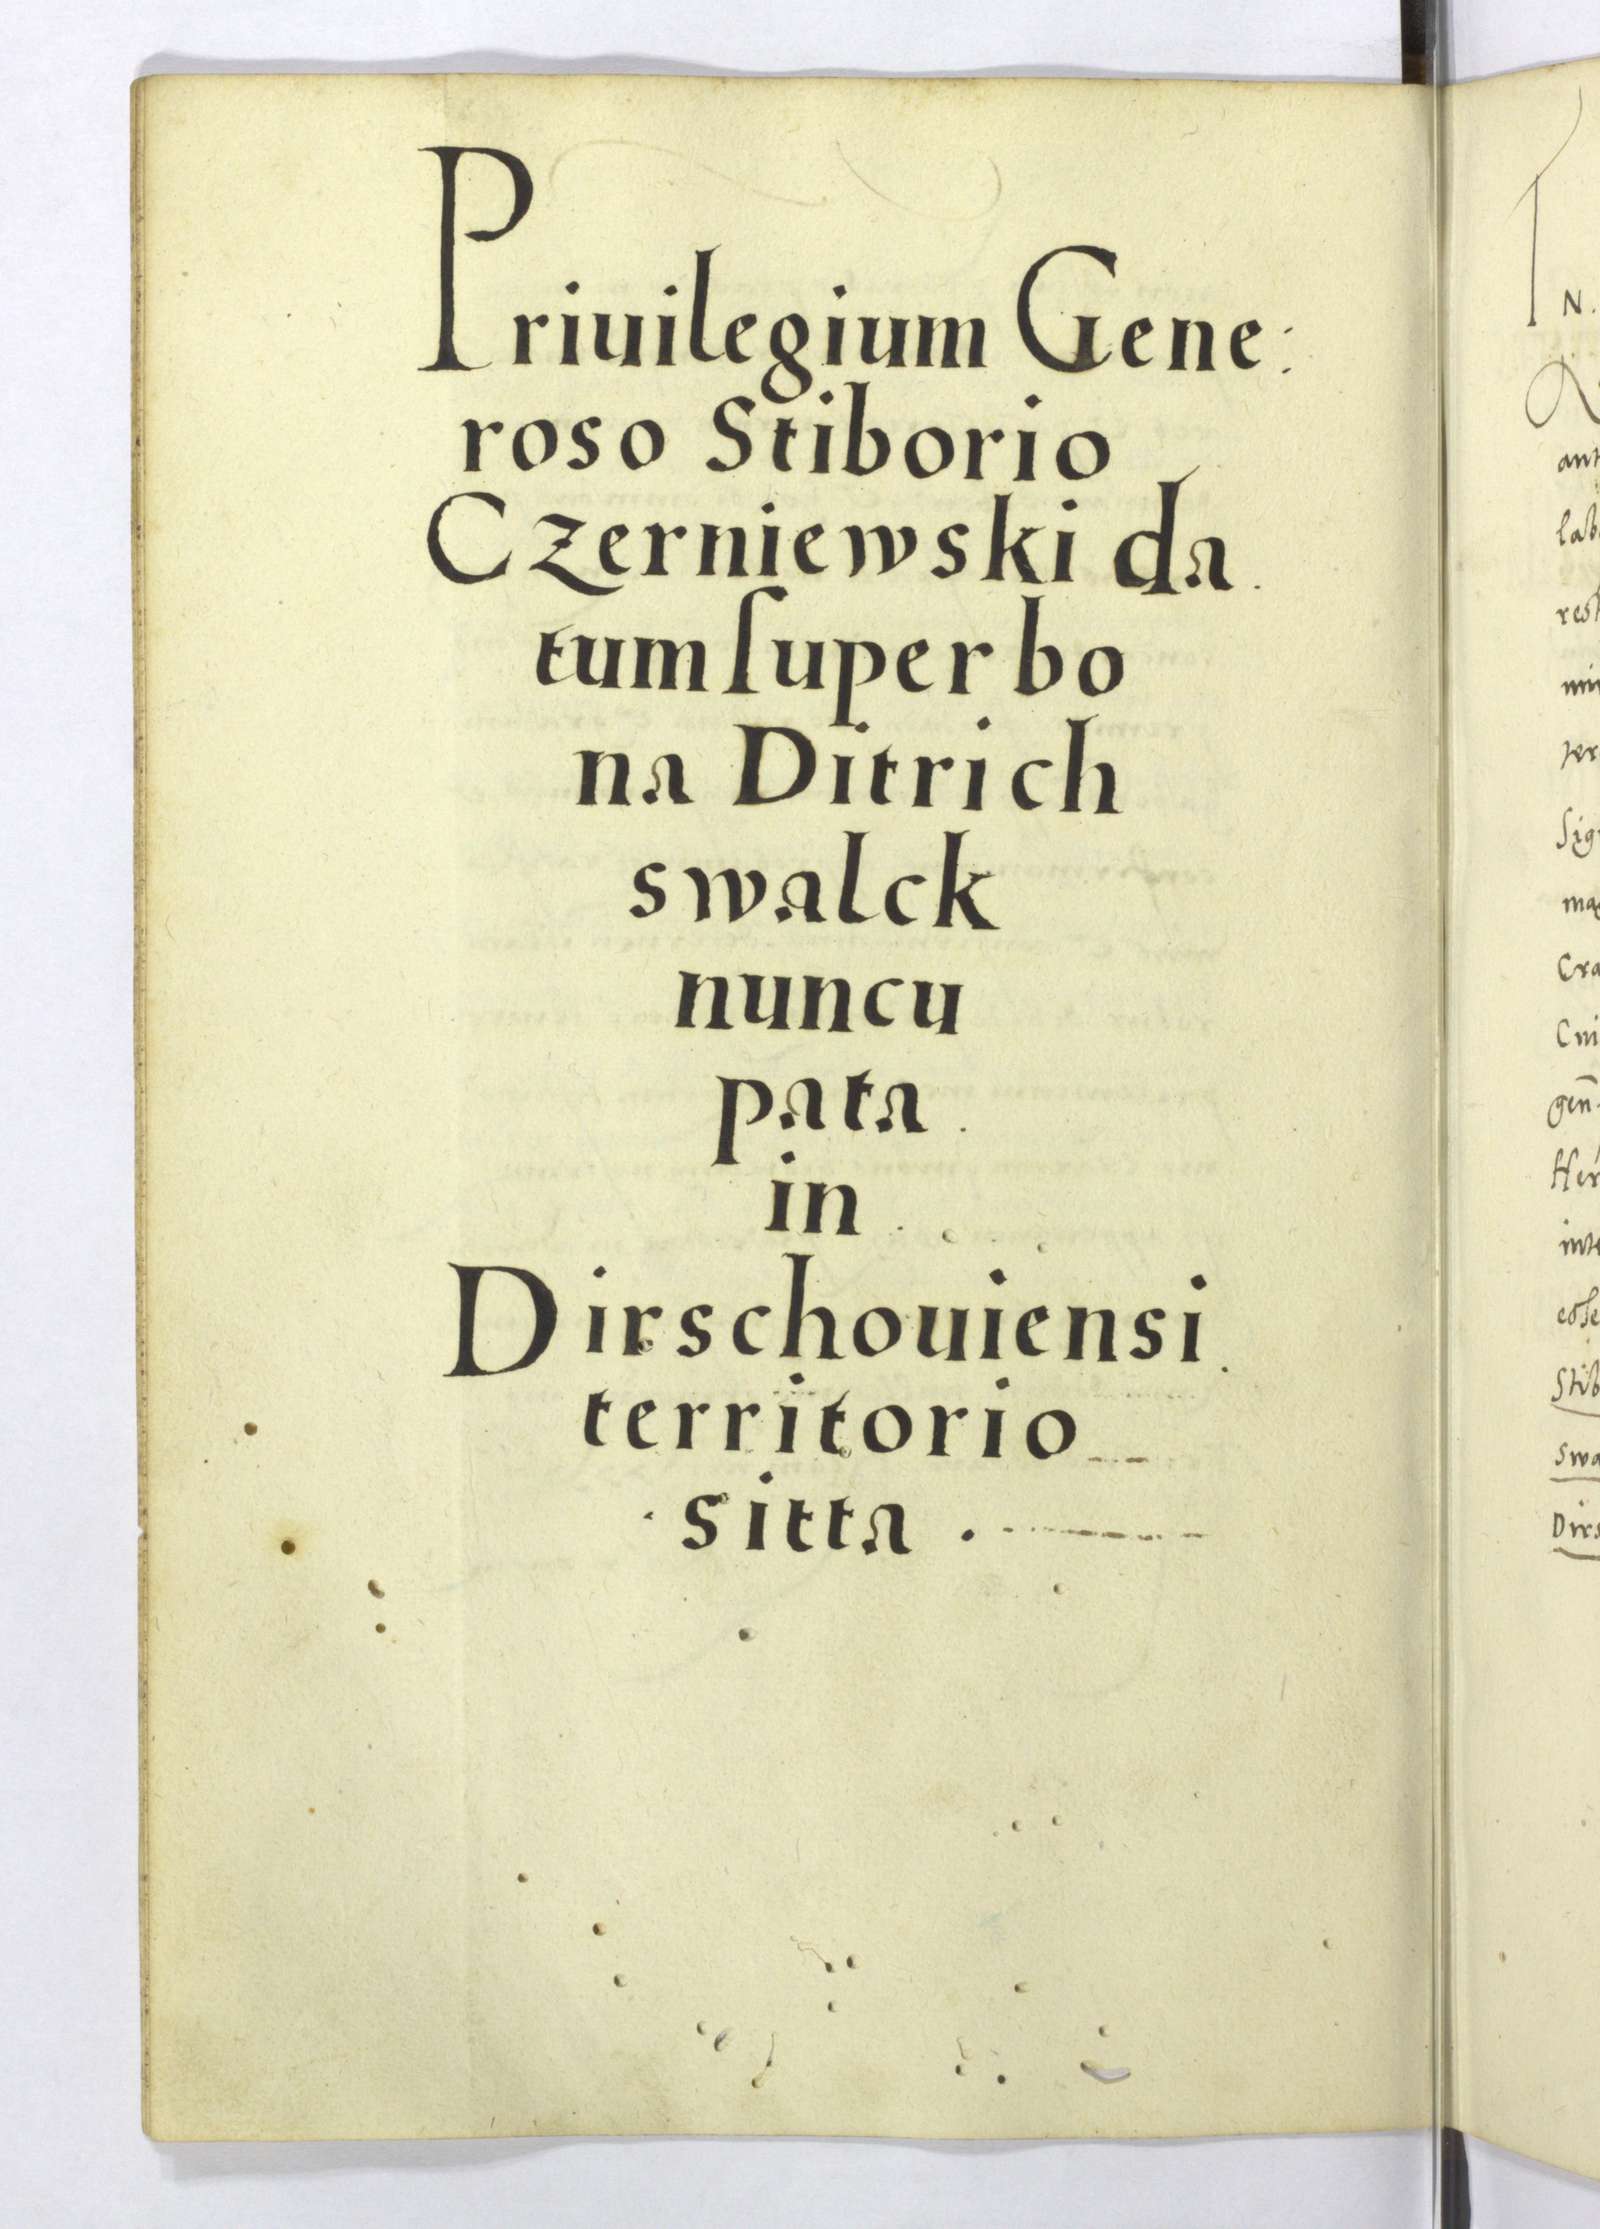 Priuilegium Gene:
roso Stiborio
Czerniewski da
tum ſuper bo
na Ditrich
swalck
nuncu
pata
in
Dirschouiensi
territorio
sitta.
N.
ant
lab
rest
ter
Sig
mag
Cra
Her
inte
Stib
swa
Dirs